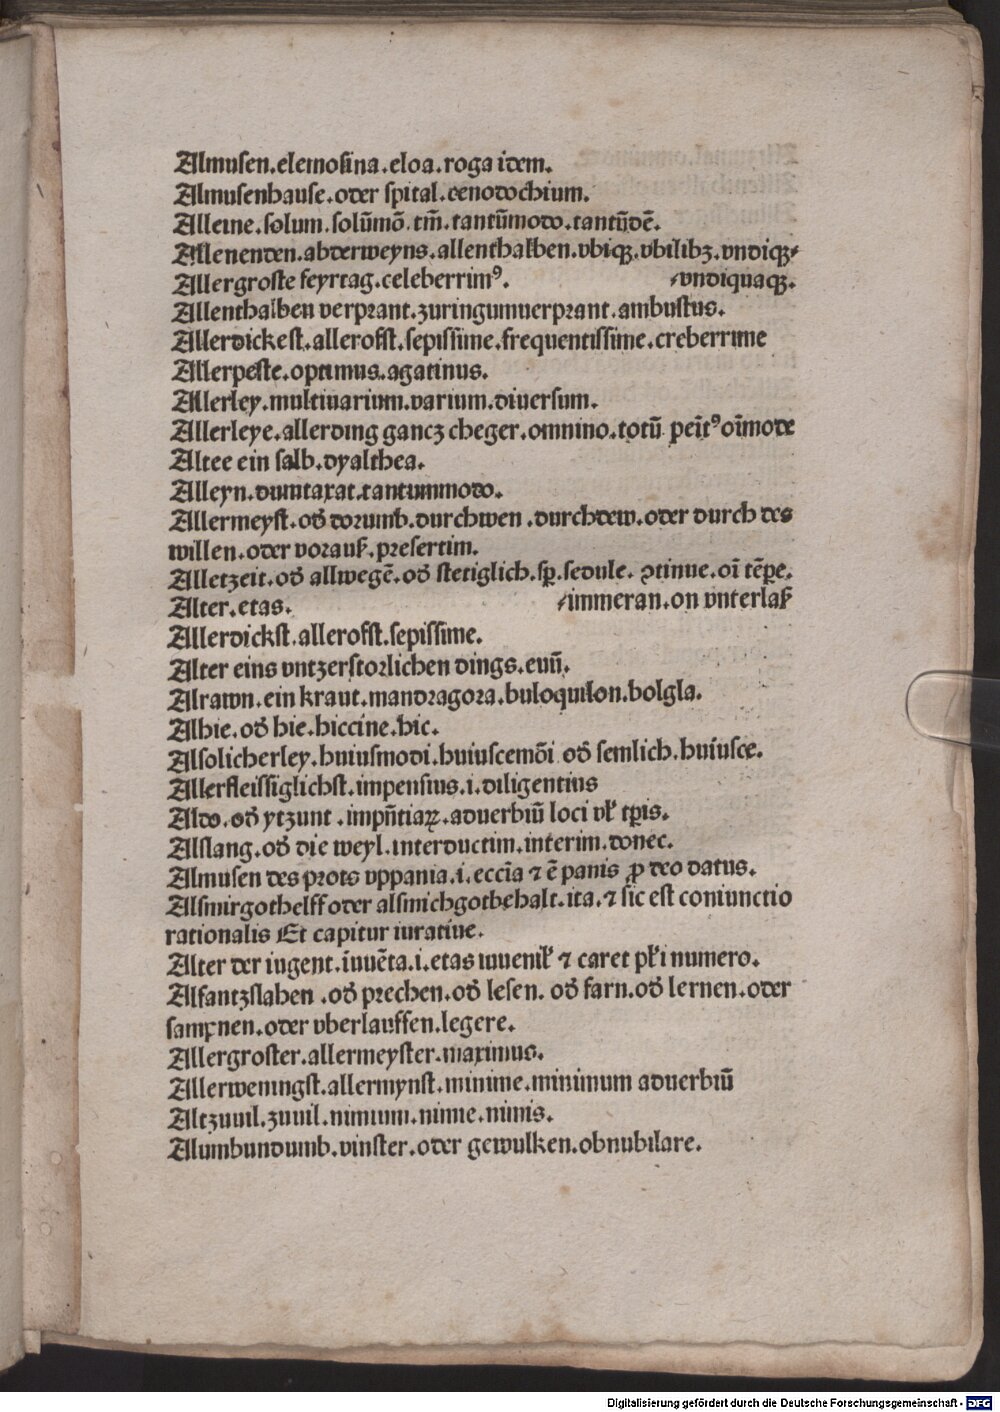 Almusen.elemosina.eloa.roga idem.
Almusenhause.oder spital.cenodochium.
Alleine.solum.solūmō.tm̄.tantūmodo.tantūdē.
Allenenden.abderweyns.allenthalben.vbiqꝫ.vbilibꝫ.vndiqꝫ
Allergroste feyrtag.celeberrimꝰ. vndiquaqꝫ.
Allenthalben verprant.zuringumuerprant.ambustus.
Allerdickest.allerofft.sepissime.frequentissime.creberrime
Allerpeste.optimus.agatinus.
Allerley.multiuarium.varium.diuersum.
Allerleye.allerding gancz cheger.omnino.totū peītꝰ oīmode
Altee ein salb.dyalthea.
Alleyn.dumtaxat.tantummodo.
Allermeyst.od̓ dorumb.durchwen.durchdew.oder durch des
willen.oder vorauß.presertim.
Alletzeit.od̓ allwegē.od̓ stetiglich.sꝑ.sedule.ꝯtinue.oī tēꝑe.
Alter.etas. immeran.on vnterlaß
Allerdickst.allerofft.sepissime.
Alter eins vntzerstorlichen dings.euū.
Alrawn.ein kraut.mandragora.buloquilon.bolgla.
Alhie.od̓ hie.hiccine.hic.
Alsolicherley.huiusmodi.huiuscemōi od̓ semlich.huiusce.
Allerfleissiglichst.impensius.i.diligentius
Aldo.od̓ ytzunt.impn̄tiaꝝ.aduerbiū loci vl̓ tꝑis.
Alslang.od̓ die weyl.interductim.interim.donec.
Almusen des prots vppania.i.eccīa ⁊ ē panis ꝓ deo datus.
Alsmirgothelff oder alsmichgotbehalt.ita.⁊ sic est coniunctio
rationalis Et capitur iuratiue.
Alter der iugent.īuuēta.i.etas iuuenil̓ ⁊ caret pl̓i numero.
Alfantzslahen.od̓ prechen.od̓ lesen.od̓ farn.od̓ lernen.oder
samṗnen.oder vberlauffen.legere.
Allergroster.allermeyster.maximus.
Allerweningst.allermynst.minime.minimum aduerbiū
Altzuuil.zuuil.nimium.nimie.nimis.
Alumbundumb.vinster.oder gewulken.obnubilare.
Digitalisierung gefördert durch die Deutsche Forschungsgemeinschaft - DFG